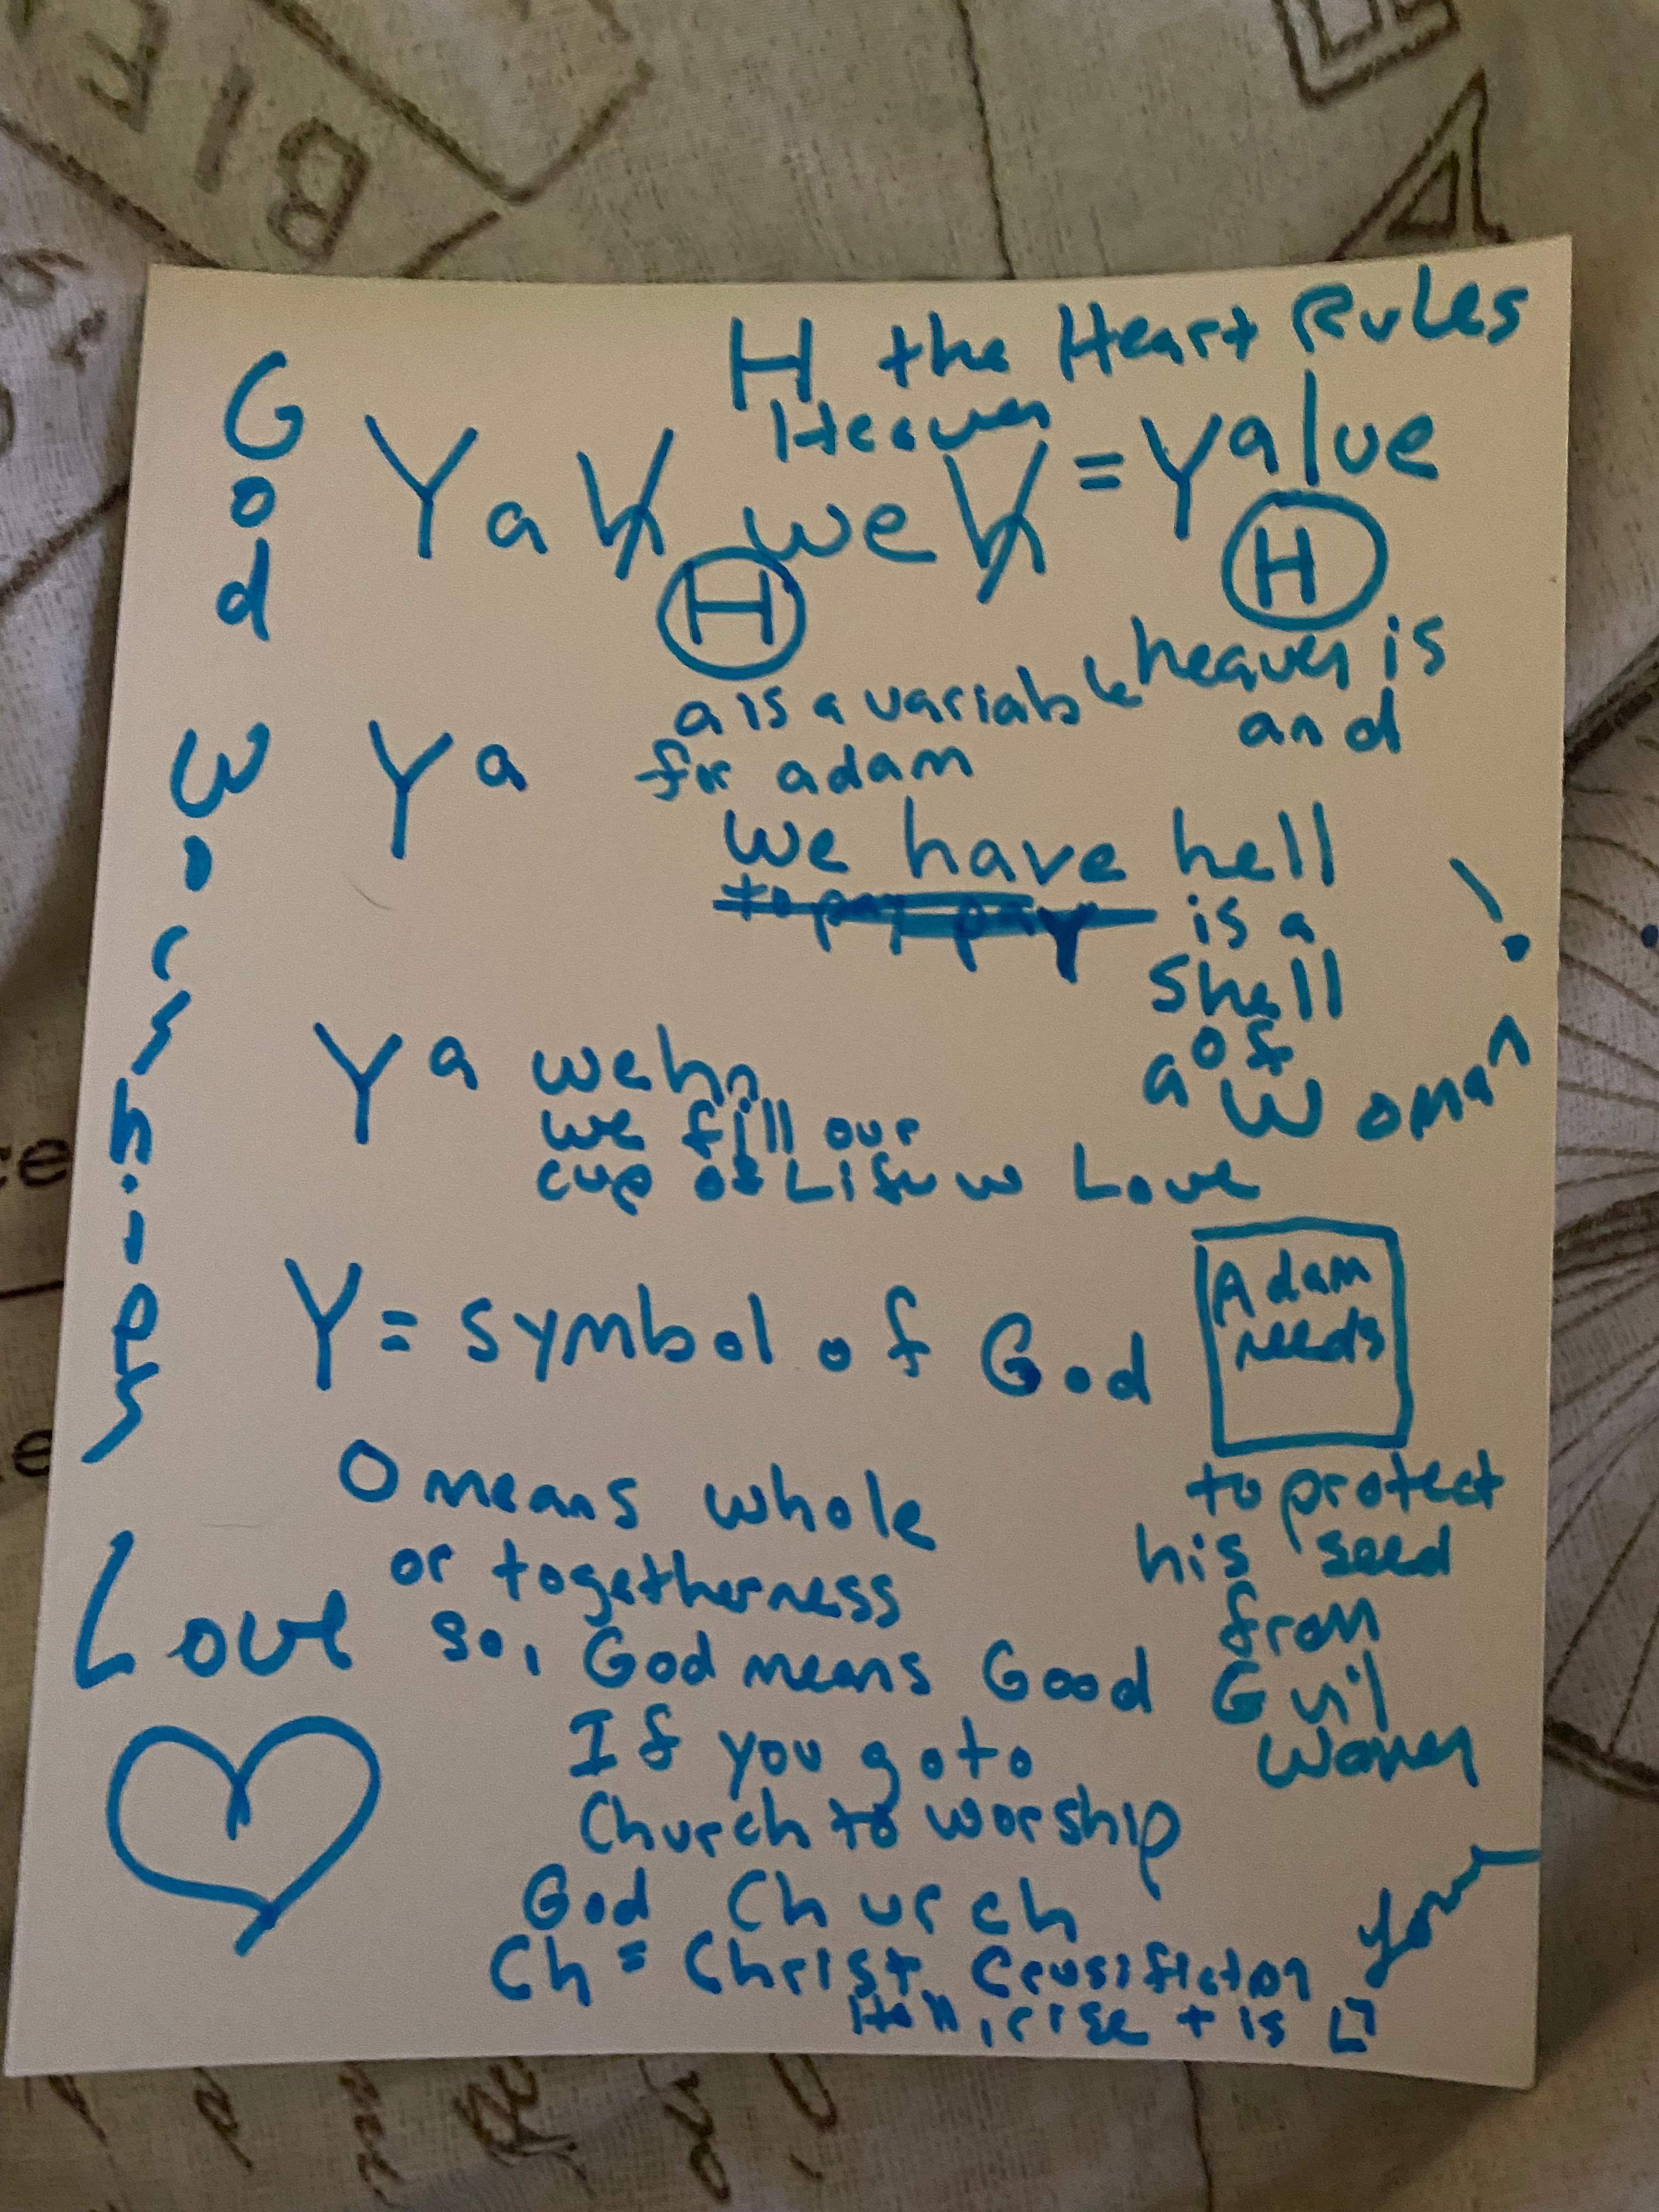 BIF
H the Heart Rules
Heaven
Yah weh = Yalue
H
H
a is a variable
for adam
heaven is
and
Ya
we have
hell
is a
shell
of
a Woman
!
Ya weh
we fill our
cup of Life w Love
Y = symbol of God
Adam
needs
to protect
his seed
from
Evil
Women
O means whole
or togetherness
so, God means Good
If you go to
Church to worship
God Church
Ch = Christ Crusifiction
rise + is
God
Worships
Love